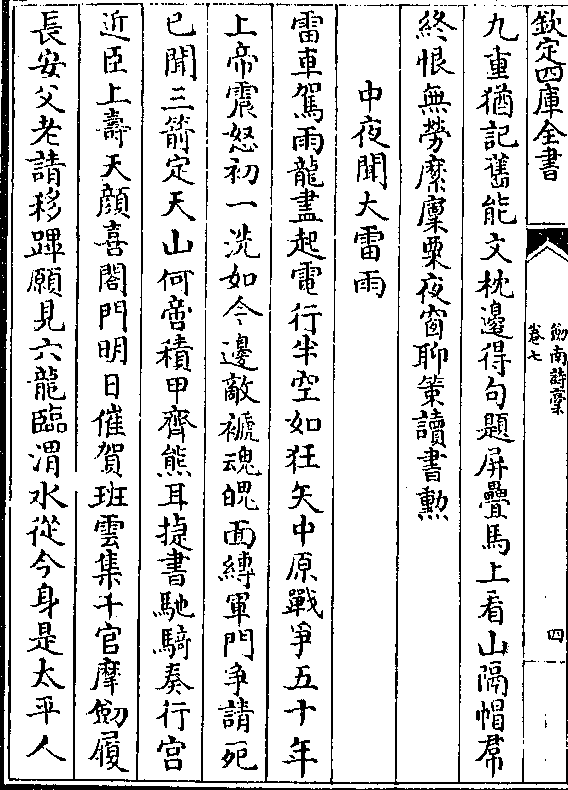 欽定四庫全書
劒南詩稾
卷七
四
九重猶記舊能文枕邊得句題屏疊馬上看山隔帽帬
終恨無勞縻廩粟夜窗聊策讀書勲
中夜聞大雷雨
雷車駕雨龍盡起電行半空如狂矢中原戰爭五十年
上帝震怒初一洗如今邊敵褫魂魄面縛軍門爭請死
已聞三箭定天山何啻積甲齊熊耳捷書馳騎奏行宫
近臣上壽天顔喜閤門明日催賀班雲集千官摩劒履
長安父老請移蹕願見六龍臨渭水從今身是太平人